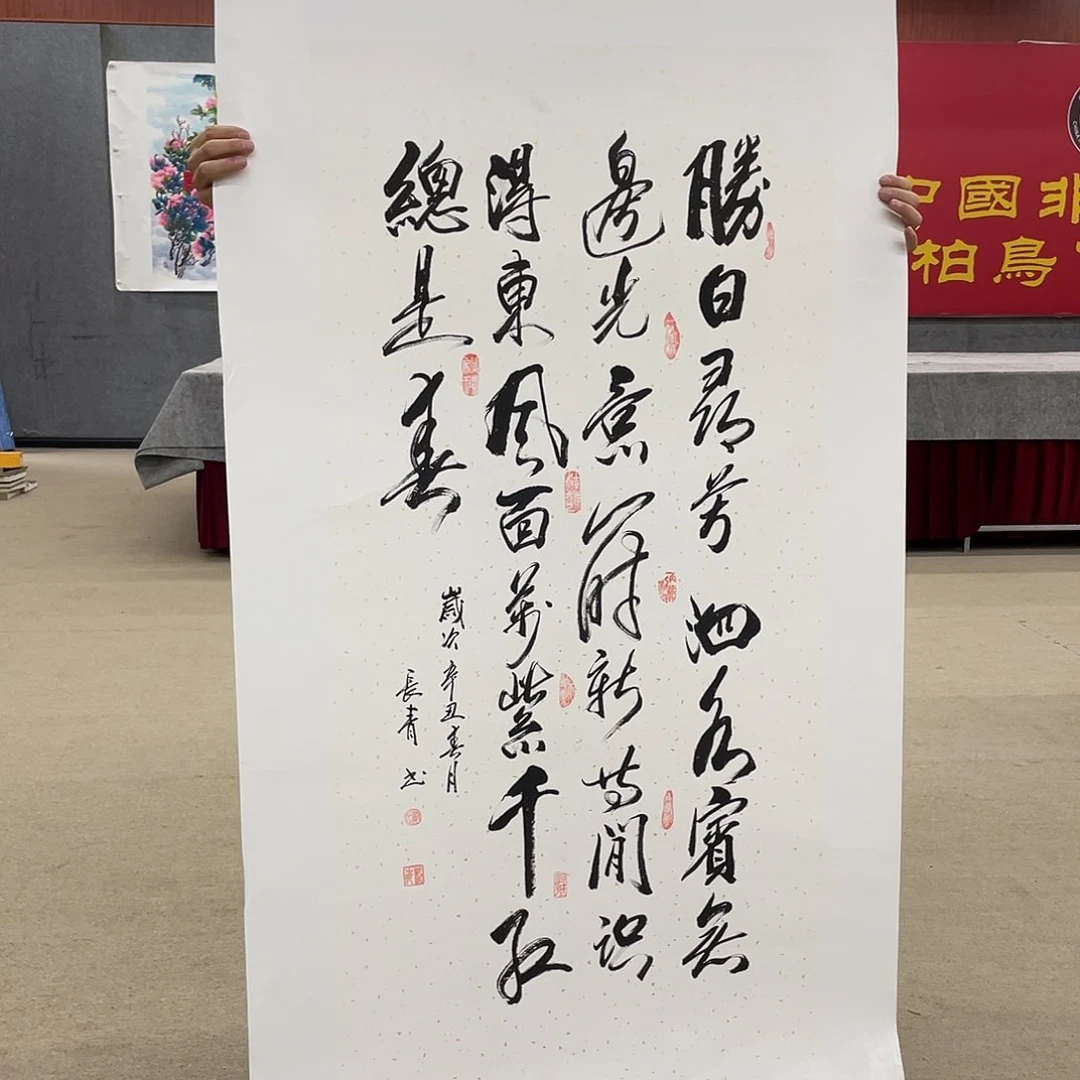 勝日尋芳泗水賓無
邊光景一時新等閒識
得東風面萬紫千紅
總是春
歲次辛丑春月
長青书
中國非
柏鳥